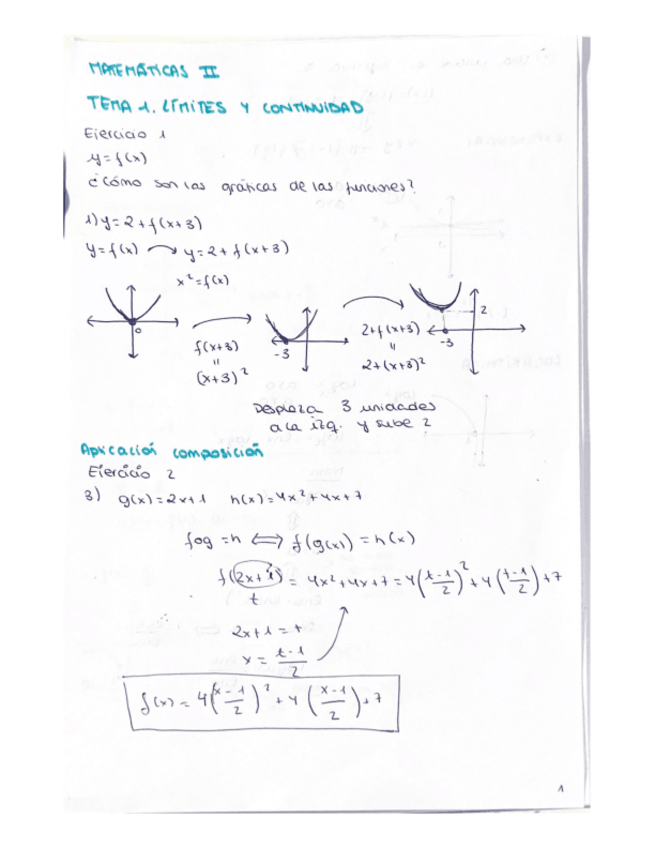 MATEMÁTICAS II
TEMA 1. LÍMITES Y CONTINUIDAD
Ejercicio 1
y=f(x)
¿Cómo son las gráficas de las funciones?
1) y=2+f(x+3)
y=f(x) → y=2+f(x+3)
x²=f(x)
0
f(x+3)
=
(x+3)²
-3
2+f(x+3)
=
2+(x+3)²
2
-3
Desplaza 3 unidades
a la izq. y sube 2
Aplicación composición
Ejercicio 2
3) g(x)=2x+1 h(x)=4x²+4x+7
fog=h ⟺ f(g(x))=h(x)
f(2x+1)=4x²+4x+7=4(t-1/2)²+4(t-1/2)+7
t
2x+1=t
x=t-1/2
f(x)=4(x-1/2)²+4(x-1/2)+7
1